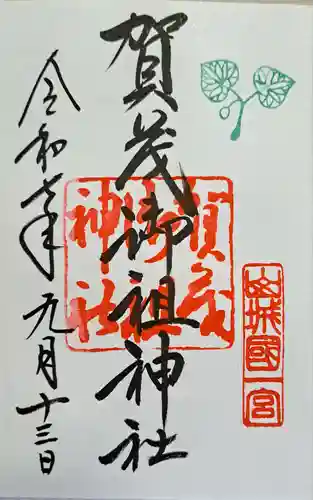 山城國一宮
賀茂御祖神社
賀茂御祖神社
令和七年九月十三日